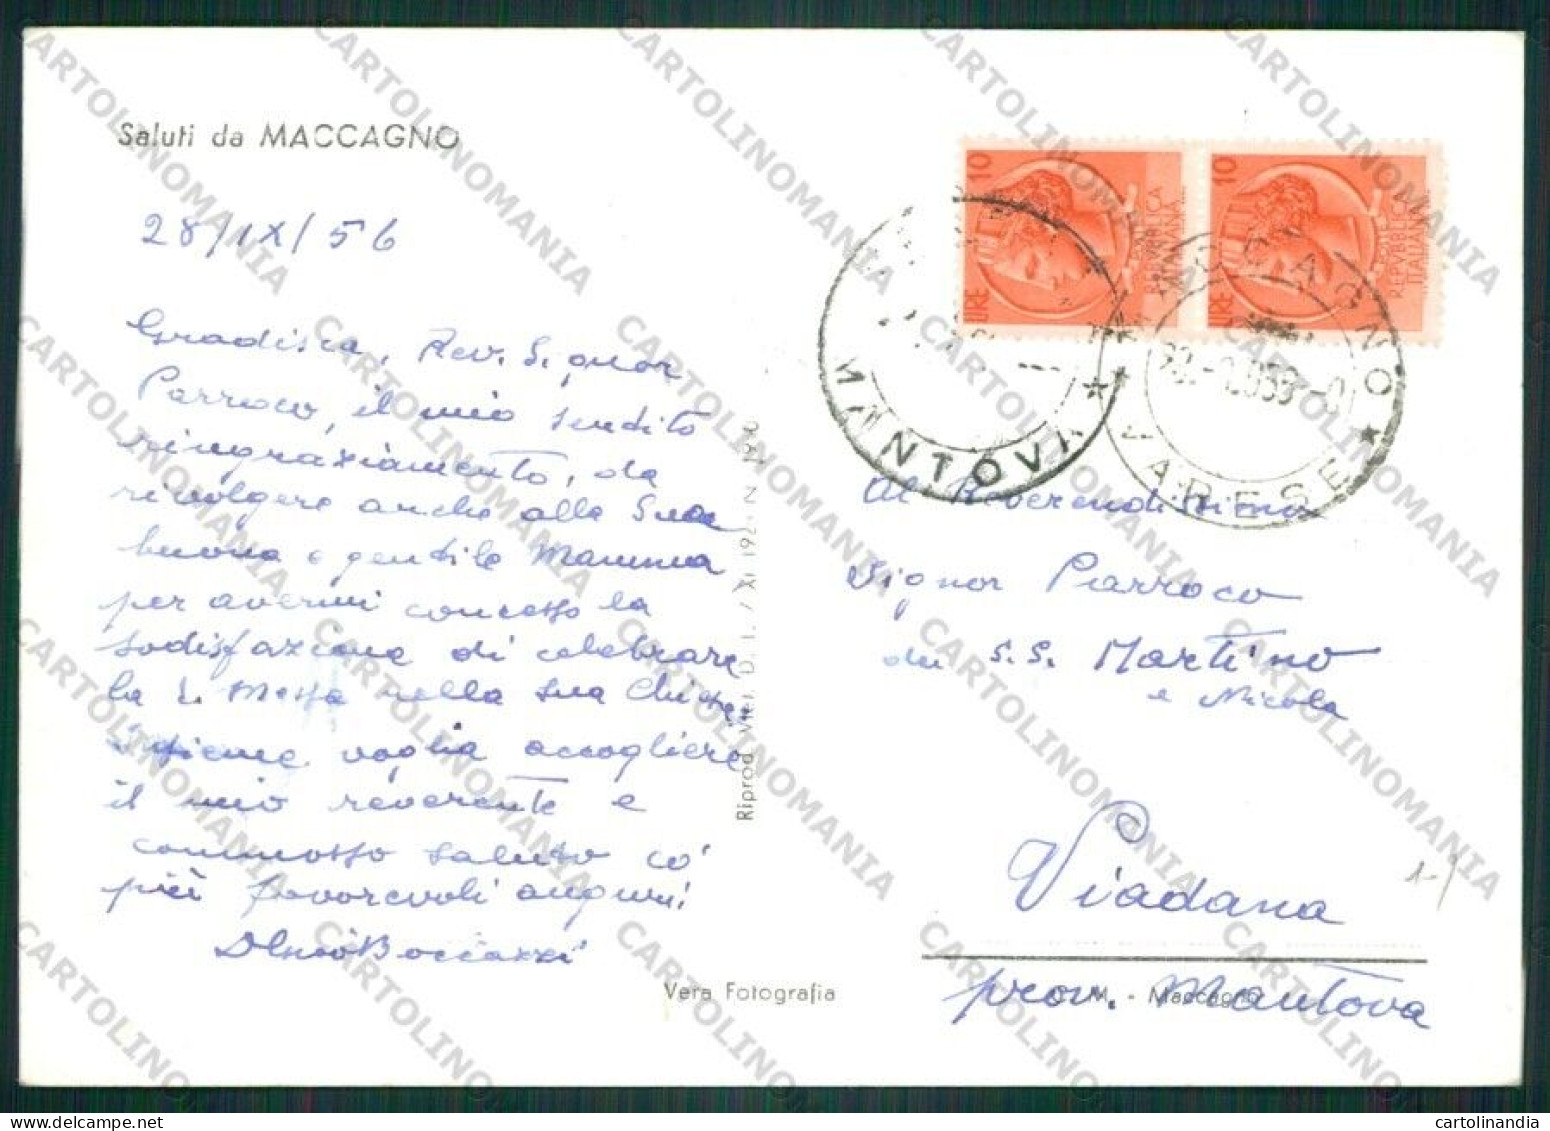 Saluti da MACCAGNO
28/IX/56
Gradisca, Rev. Signor
Parroco, il mio sentito
ringraziamento, da
rivolgere anche alla Sua
buona e gentile Mamma
per avermi concesso la
sodisfazione di celebrare
la S. Messa nella Sua Chiesa.
Insieme voglia accogliere
il mio reverente e
commosso saluto co'
più favorevoli auguri!
Boccazzi
Riprod. Viet. D. I. / XI 192 N
Vera Fotografia
LIRE 10
REPVBBLICA
ITALIANA
LIRE 10
REPVBBLICA
ITALIANA
MANTOVA
MACCAGNO
VARESE
Al Reverendissimo
Signor Parroco
dei S.S. Martino
e Nicola
Viadana
prov. Mantova
M. - Maccagno
CARTOLINOMANIA
cartolinandia